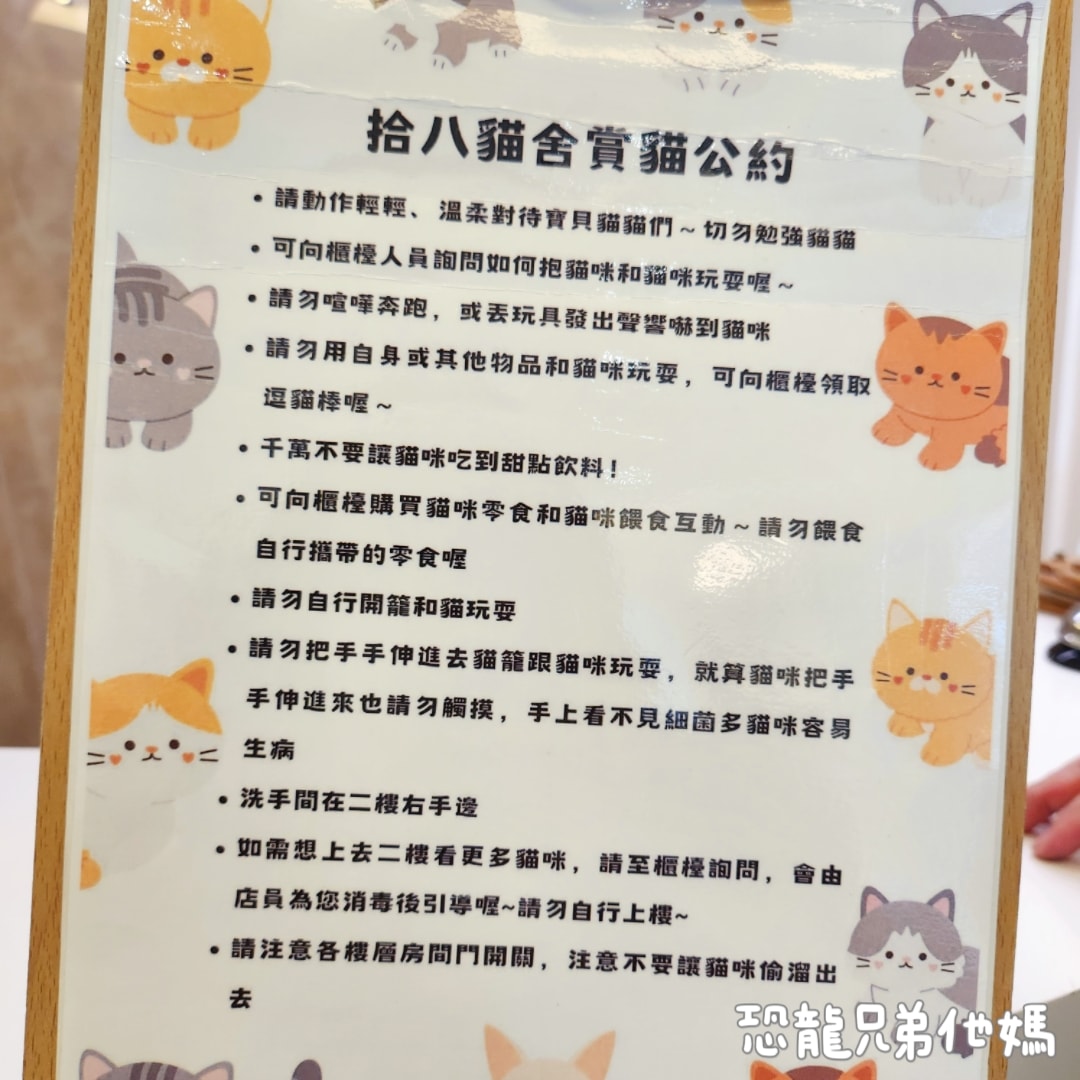 拾八貓舍賞貓公約
• 請動作輕輕、溫柔對待寶貝貓貓們～切勿勉強貓貓
• 可向櫃檯人員詢問如何抱貓咪和貓咪玩耍喔～
• 請勿喧嘩奔跑，或丟玩具發出聲響嚇到貓咪
• 請勿用自身或其他物品和貓咪玩耍，可向櫃檯領取
逗貓棒喔～
• 千萬不要讓貓咪吃到甜點飲料！
• 可向櫃檯購買貓咪零食和貓咪餵食互動～請勿餵食
自行攜帶的零食喔
• 請勿自行開籠和貓玩耍
• 請勿把手手伸進去貓籠跟貓咪玩耍，就算貓咪把手
手伸進來也請勿觸摸，手上看不見細菌多貓咪容易
生病
• 洗手間在二樓右手邊
• 如需想上去二樓看更多貓咪，請至櫃檯詢問，會由
店員為您消毒後引導喔~請勿自行上樓~
• 請注意各樓層房間門開關，注意不要讓貓咪偷溜出
去
恐龍兄弟他媽